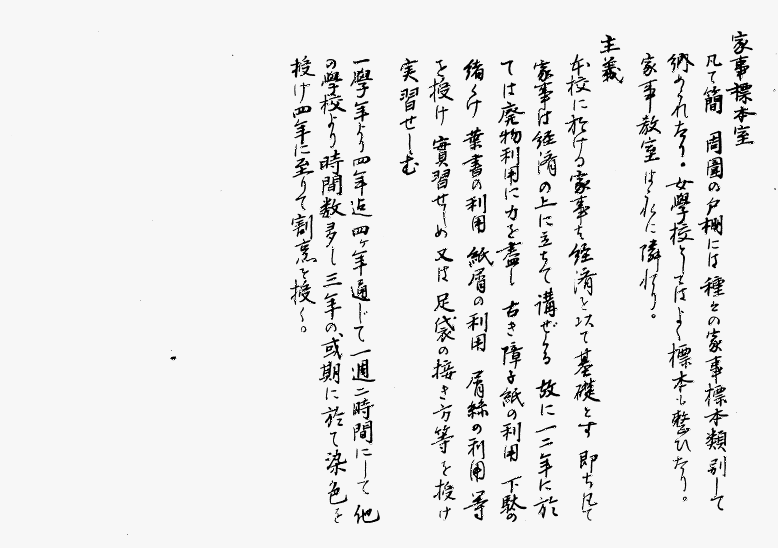 家事標本室
凡て簡 周圍の戸棚には種々の家事標本類別して
納められたり。女學校としてはよく標本も整ひたり。
家事教室はこれに隣れり。
主義
本校に於ける家事も経済を以て基礎とす 即ち凡て
家事は経済の上に立ちて講ぜらる 故に一二年に於
ては廃物利用に力を盡し 古き障子紙の利用 下駄の
緒くけ 葉書の利用 紙屑の利用 屑絲の利用 等
を授け 實習せしめ 又は足袋の接き方等を授け
実習せしむ
一學年より四年迄四ヶ年通じて一週二時間にして他
の學校より時間数多し 三年の或期に於て染色を
授け四年に至りて割烹を授く。